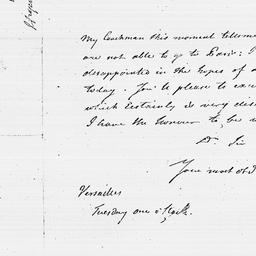 My Coachman this moment tells me
are not able to go to Paris: I
disappointed in the hopes of a
today. You'l be please to excu
which certainly is very dis
I have the honour to be w
Dr. Sir
Your most ob
Versailles
Tuesday one o'Clock.